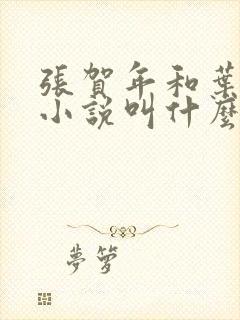 張賀年和葉
小說叫什麼
夢籮